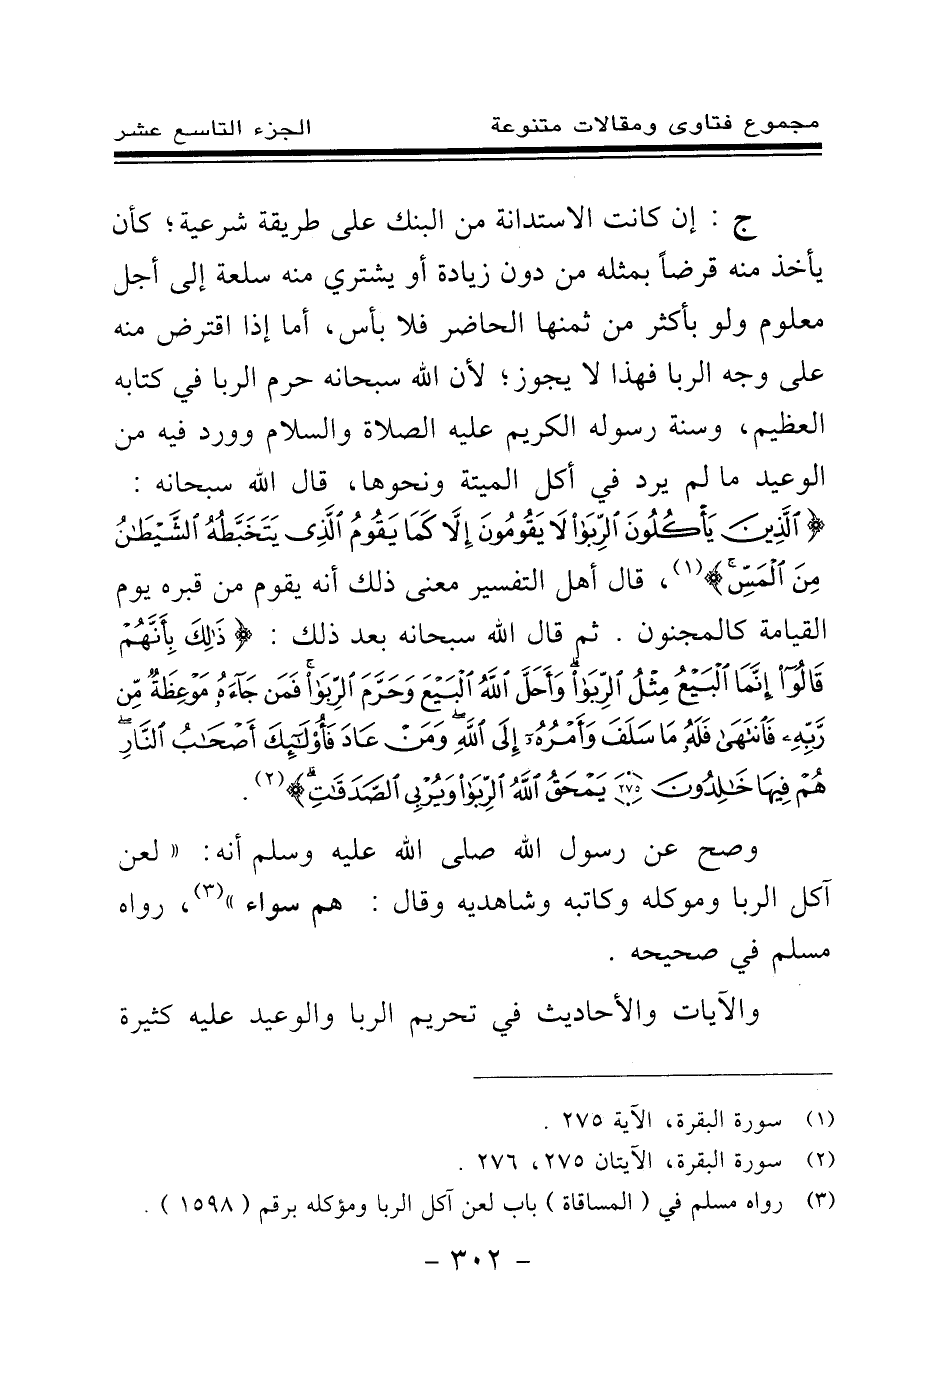 مجموع فتاوى ومقالات متنوعة الجزء التاسع عشر
ج : إن كانت الاستدانة من البنك على طريقة شرعية؛ كأن
يأخذ منه قرضاً بمثله من دون زيادة أو يشتري منه سلعة إلى أجل
معلوم ولو بأكثر من ثمنها الحاضر فلا بأس، أما إذا اقترض منه
على وجه الربا فهذا لا يجوز؛ لأن الله سبحانه حرم الربا في كتابه
العظيم، وسنة رسوله الكريم عليه الصلاة والسلام وورد فيه من
الوعيد ما لم يرد في أكل الميتة ونحوها، قال الله سبحانه :
﴿ ٱلَّذِينَ يَأْكُلُونَ ٱلرِّبَوٰا۟ لَا يَقُومُونَ إِلَّا كَمَا يَقُومُ ٱلَّذِى يَتَخَبَّطُهُ ٱلشَّيْطَـٰنُ
مِنَ ٱلْمَسِّ ۚ ﴾(١)، قال أهل التفسير معنى ذلك أنه يقوم من قبره يوم
القيامة كالمجنون . ثم قال الله سبحانه بعد ذلك : ﴿ ذَٰلِكَ بِأَنَّهُمْ
قَالُوٓا۟ إِنَّمَا ٱلْبَيْعُ مِثْلُ ٱلرِّبَوٰا۟ ۗ وَأَحَلَّ ٱللَّهُ ٱلْبَيْعَ وَحَرَّمَ ٱلرِّبَوٰا۟ ۚ فَمَن جَآءَهُۥ مَوْعِظَةٌ مِّن
رَّبِّهِۦ فَٱنتَهَىٰ فَلَهُۥ مَا سَلَفَ وَأَمْرُهُۥٓ إِلَى ٱللَّهِ ۖ وَمَنْ عَادَ فَأُو۟لَـٰٓئِكَ أَصْحَـٰبُ ٱلنَّارِ ۖ
هُمْ فِيهَا خَـٰلِدُونَ ٢٧٥ يَمْحَقُ ٱللَّهُ ٱلرِّبَوٰا۟ وَيُرْبِى ٱلصَّدَقَـٰتِ ۗ ﴾(٢) .
وصح عن رسول الله صلى الله عليه وسلم أنه: « لعن
آكل الربا وموكله وكاتبه وشاهديه وقال : هم سواء »(٣)، رواه
مسلم في صحيحه .
والآيات والأحاديث في تحريم الربا والوعيد عليه كثيرة
(١) سورة البقرة، الآية ٢٧٥ .
(٢) سورة البقرة، الآيتان ٢٧٥، ٢٧٦ .
(٣) رواه مسلم في ( المساقاة ) باب لعن آكل الربا ومؤكله برقم ( ١٥٩٨ ) .
- ٣٠٢ -